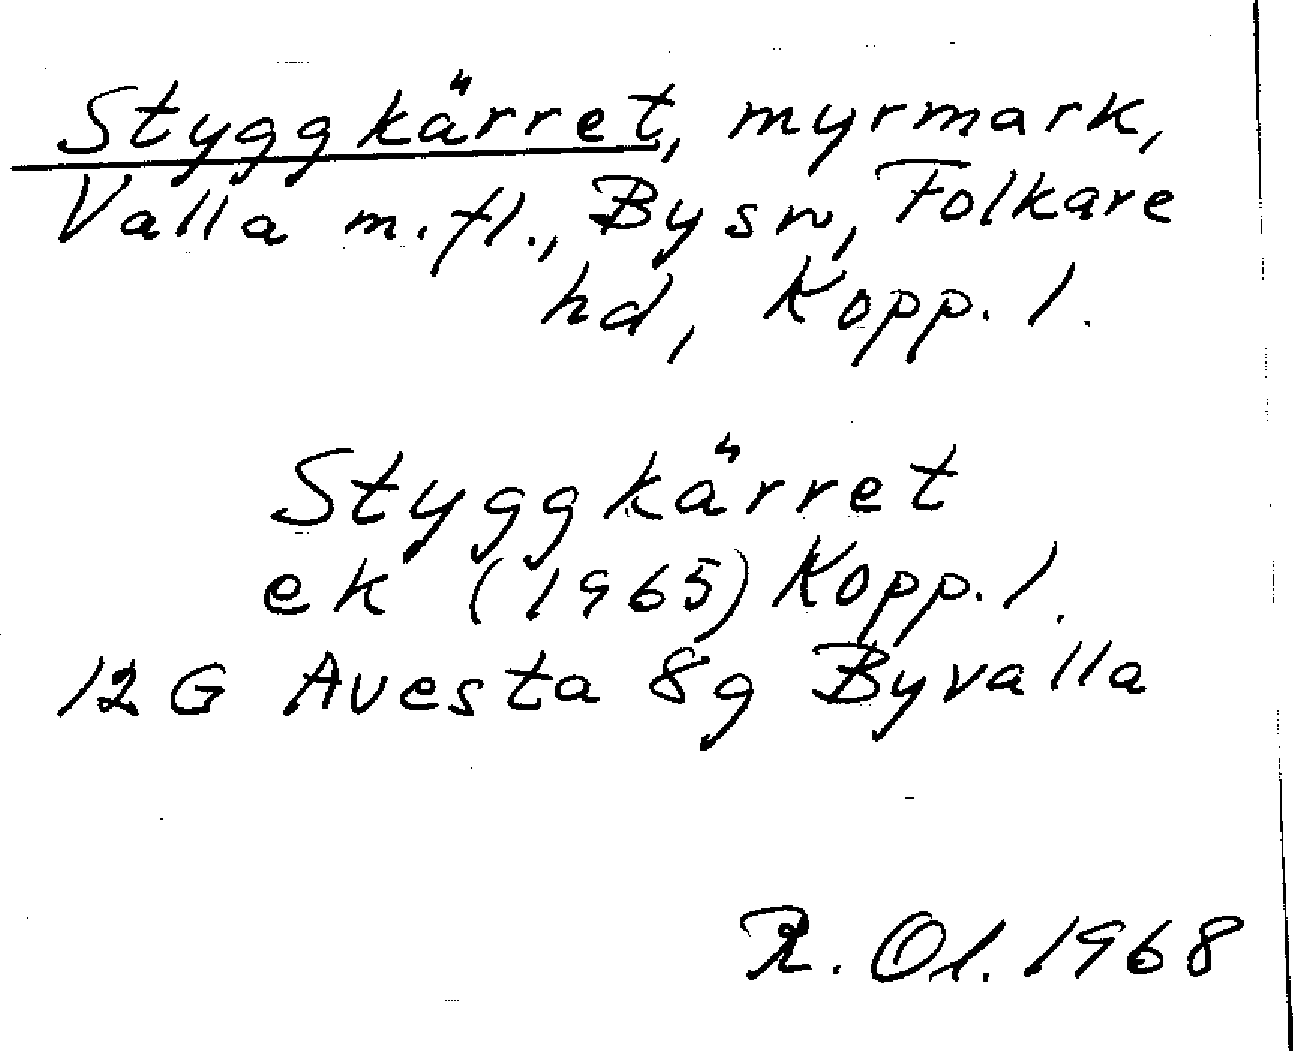 Styggkärret, myrmark,
Valla m.fl., By sn, Folkare
hd, Kopp. l.
Styggkärret
ek (1965) Kopp. l.
12 G Avesta 8g Byvalla
R. Ol. 1968